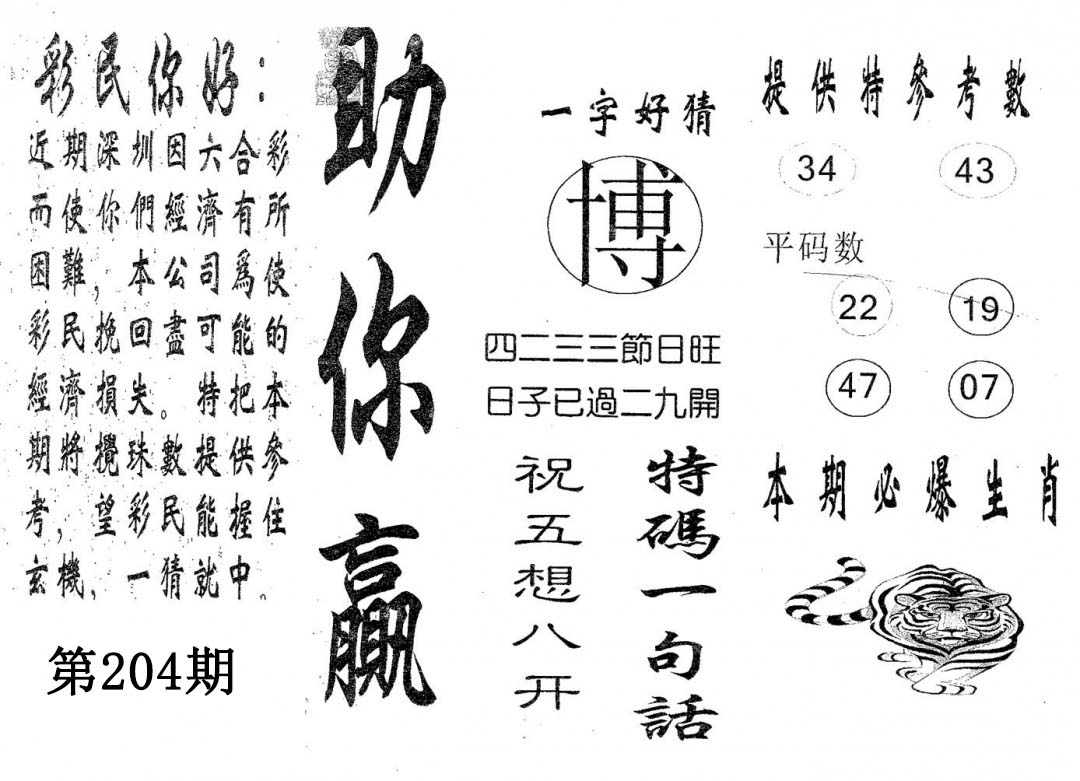 彩民你好：
近期深圳因六合彩
而使你們經濟有所
困難，本公司爲使
彩民挽回盡可能的
經濟損失。特把本
期將攪珠數提供參
考，望彩民能握住
玄機，一猜就中。
第204期
助你贏
一字好猜
博
四二三三節日旺
日子已過二九開
特碼一句話
祝五想八开
提供特參考數
34 43
平码数
22 19
47 07
本期必爆生肖